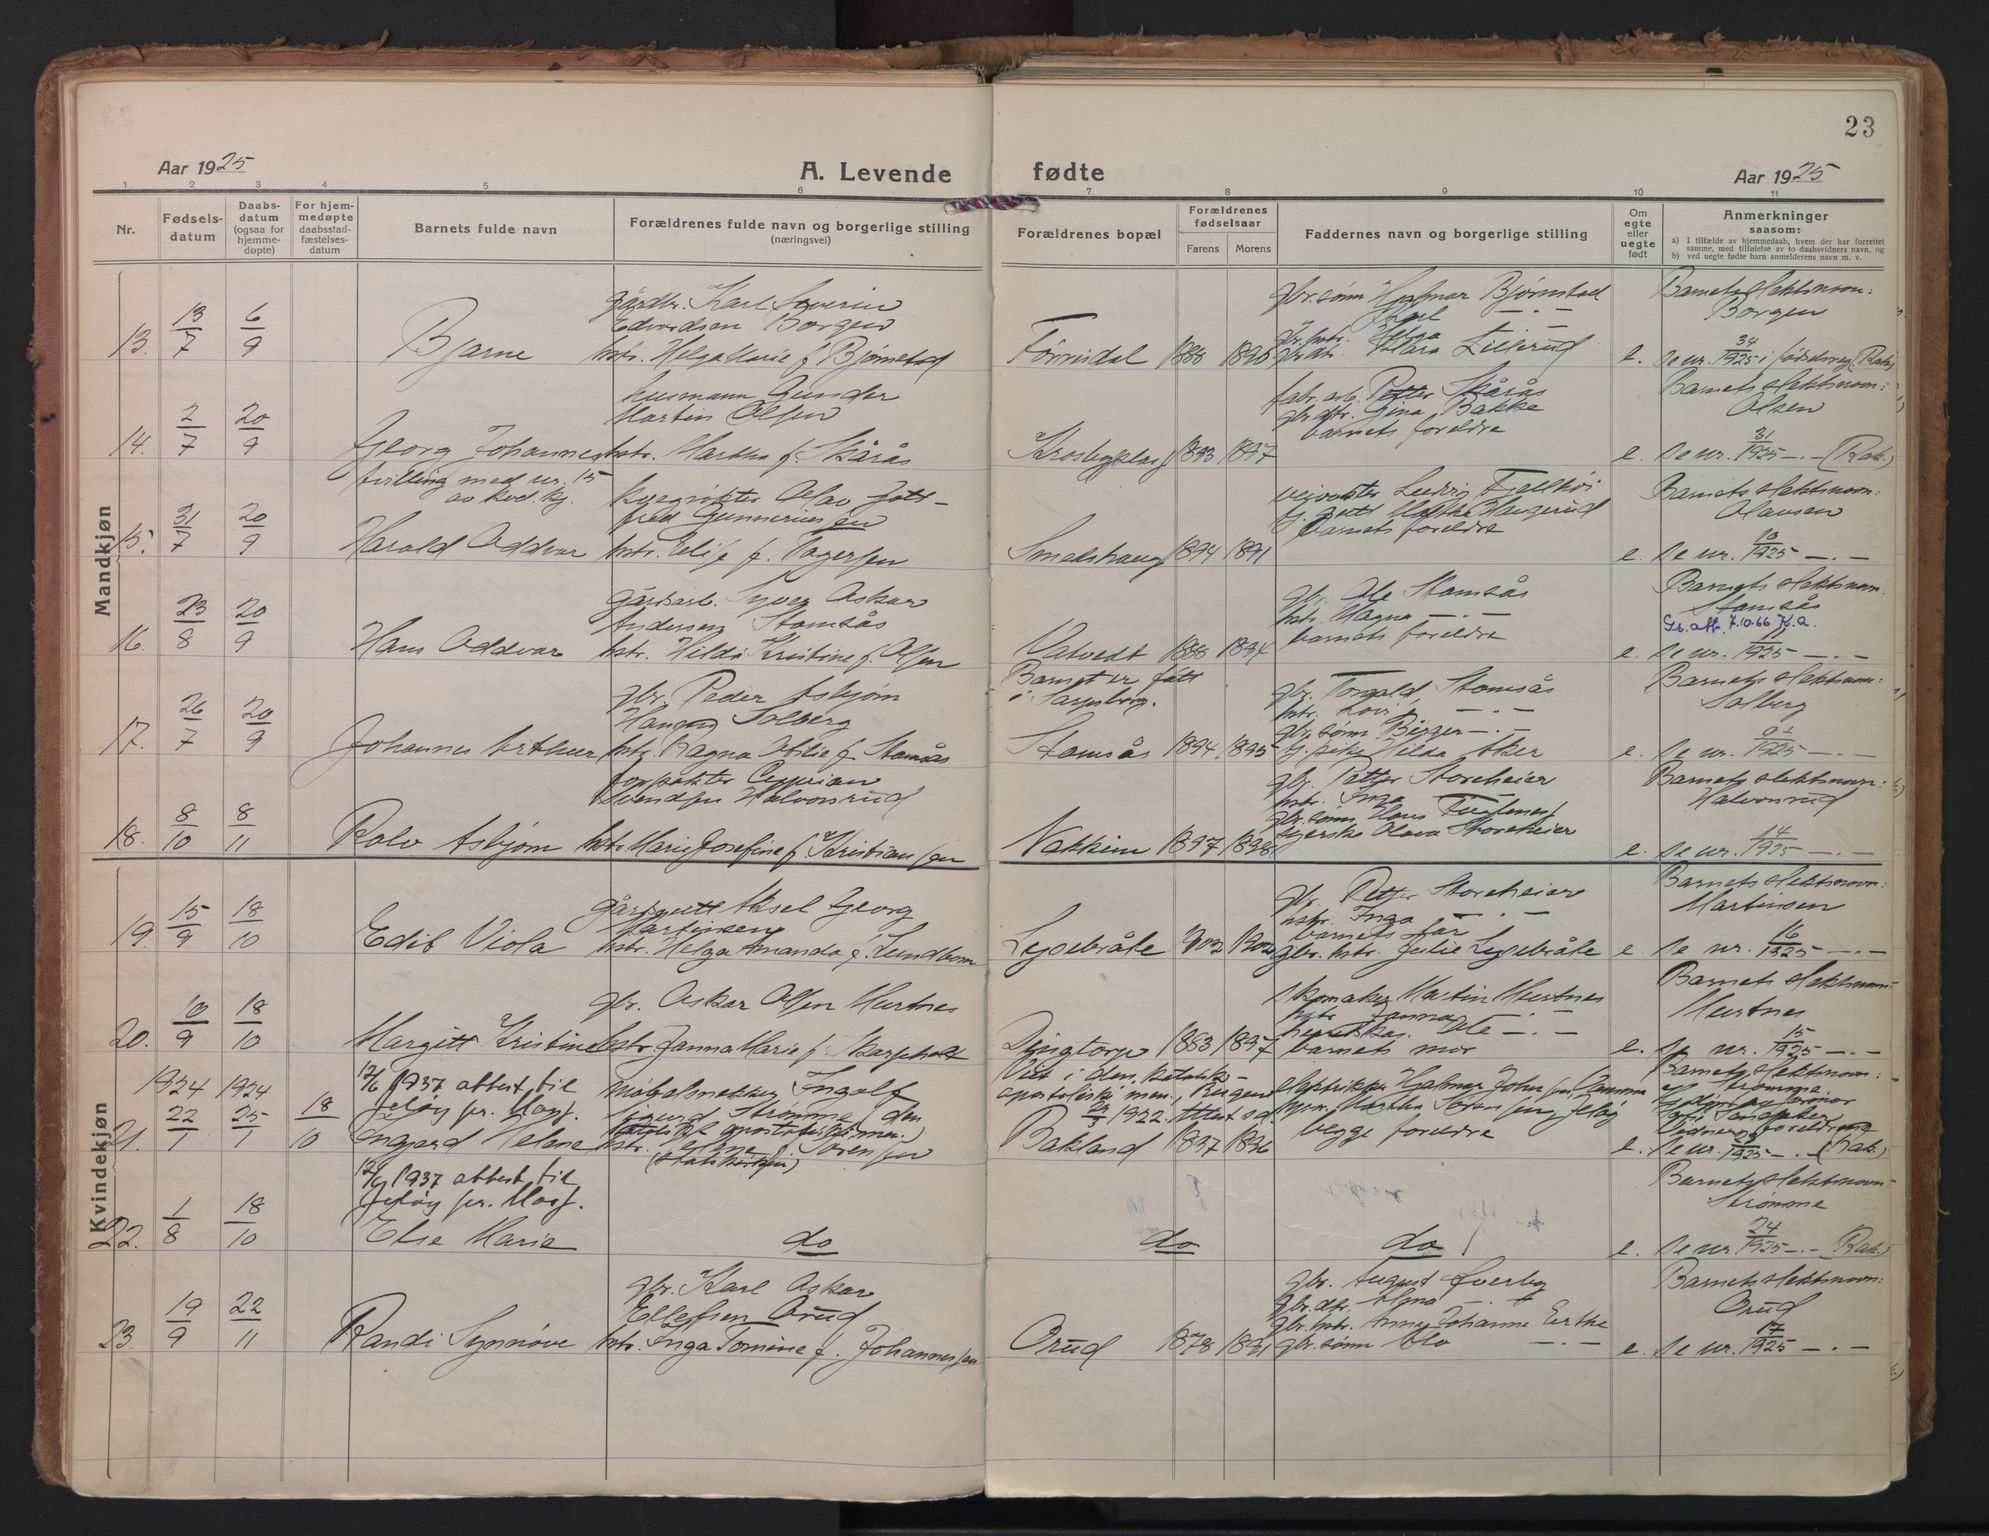 23
Aar 1925
A. Levende fødte
Aar 1925
1 2 3 4 5 6 7 8 9 10 11
Nr.
Fødselsdatum
Daabsdatum (ogsaa for hjemmedøpte)
For hjemmedøpte daabsstadfæstelsesdatum
Barnets fulde navn
Forældrenes fulde navn og borgerlige stilling (næringsvei)
Forældrenes bopæl
Forældrenes fødselsaar
Farens Morens
Faddernes navn og borgerlige stilling
Om egte eller uegte født
Anmerkninger saasom:
a) I tilfælde av hjemmedaab, hvem der har forrettet samme, med tilføielse av to daabsvidners navn, og
b) ved uegte fødte barn anmelderens navn m. v.
Mandkjøn
gårdbr. Karl Severin
Edvardsen Borgen
13. 13/7 6/9 Bjarne hstr. Helga Marie f. Bjørnstad
1888 1890
gbr.sønn Hjalmar Bjørnstad
Karl — . —
Helga
Klara Lillerud
e.
Barnets slektsnavn:
Borgen
se nr. 34/1925 i fødselsreg (Rak.)
husmann Gunder
Martin Olsen
14. 2/7 20/9 Georg Johannes hstr. Martha f. Skårås
Krosbyplass 1893 1897
fabr. arb. Petter Skårås
gbr.dtr. Gina Bakke
barnets foreldre
e.
Barnets slektsnavn:
Olsen
se nr. 31/1925 — . — (Rak.)
tvilling med nr. 15
av kvd. kj.
Olav Gott-
fred Gunneriussen
15. 31/7 20/9 Harald Oddvar hstr. Elise f. Torgersen
Smedshaug 1894 1891
Ludvig
Haugerud
barnets foreldre
e.
Barnets slektsnavn:
Olausen
se nr. 10/1925 — . —
gårdsarb. Syver Oskar
Andersen Stomsås
16. 23/8 20/9 Hans Oddvar hstr. Hilda Kristine f. Olsen
Vatvedt 1888 1894
gbr. Ole Stomsås
hstr. Magna — . —
barnets foreldre
e.
Barnets slektsnavn:
Stomsås
7.10.66 K.a.
se nr. 11/1925 — . —
gbr. Peder Asbjørn
Hansen Solberg
17. 26/7 20/9 Johannes Arthur hstr. Ragna Otilie f. Stomsås
Barnet er født
i Sarpsborg.
Stomsås 1894 1895
gbr. Torvald Stomsås
hstr. Lovi — . —
gbr. sønn Birger — . —
Hilda Aker
e.
Barnets slektsnavn:
Solberg
se nr. 1925 — . —
forpakter Cyprian
Svendsen Halvorsrud
18. 8/10 8/11 Rolv Asbjørn hstr. Marie Josefine f. Kristiansen
Nakkim 1897 1898
gbr. Petter Storeheier
hstr. Inga
gbr. sønn Hans
syerske Olava Storeheier
e.
Barnets slektsnavn:
Halvorsrud
se nr. 14/1925 — . —
Kvindekjøn
gårdsgutt Aksel Georg
Martinsen
19. 15/9 18/10 Edit Viola hstr. Helga Amanda f. Lundbom
Lysebråte 1902 1902
gbr. Petter Storeheier
hstr. Inga — . —
barnets far
gbr. hstr. Julie Lysebråte
e.
Barnets slektsnavn:
Martinsen
se nr. 16/1925 — . —
gbr. Oskar Olsen Hurtnes
20. 10/9 18/10 Margitt Kristine hstr. Janna Marie f. Skarpholt
Dyngtorp 1883 1897
skomaker Martin Hurtnes
hstr. Janna
Ole — . —
barnets mor
e.
Barnets slektsnavn:
Hurtnes
se nr. 15/1925 — . —
1924 1924
12/6 1937 attest til
Jeløy pr. Moss.
møbelsnekker Ingolf
Sigurd Strømme (den
katolsk apostoliske men.)
21. 22/1 25/1 18/10 Ingjerd Helene hstr. f. Sørensen
(statskirken)
Viet i den katolsk-
apostoliske men.,
1922. Attest
Bakland 1897 1896
elektriker Hjalmar Johnsen
Martha Sørensen Jeløy
begge foreldre
e.
Barnets slektsnavn:
Strømme
se nr. 23/1925 — . — (Rak.)
12/6 1937 attest til
Jeløy pr. Moss.
22. 1/8 18/10 Else Marie do do do
e.
Barnets slektsnavn:
Strømme
se nr. 24/1925 — . — (Rak.)
gbr. Karl Oskar
Ellefsen Orud
23. 19/9 22/11 Randi Synnøve hstr. Inga Tomine f. Johannessen
Orud 1878 1891
gbr. August Sverby
gbr. dtr. — . —
gbr. hstr. Anna Johanne Ertke
gbr. sønn — . —
e.
Barnets slektsnavn:
Orud
se nr. 17/1925 — . —